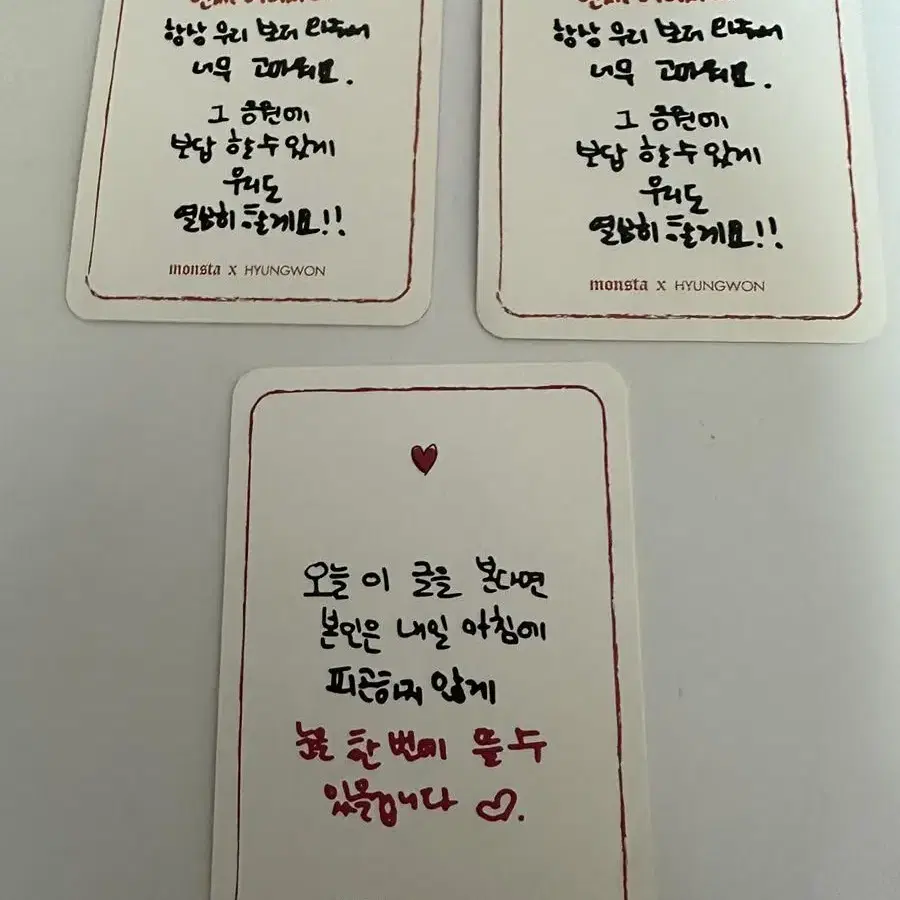 항상 우리 보러 와줘서
너무 고마워요.
그 응원에
보답 할 수 있게
우리도
열심히 할게요!!
monsta x HYUNGWON
항상 우리 보러 와줘서
너무 고마워요.
그 응원에
보답 할 수 있게
우리도
열심히 할게요!!
monsta x HYUNGWON
오늘 이 글을 본다면
본인은 내일 아침에
피곤하지 않게
눈을 한 번에 뜰 수
있을겁니다